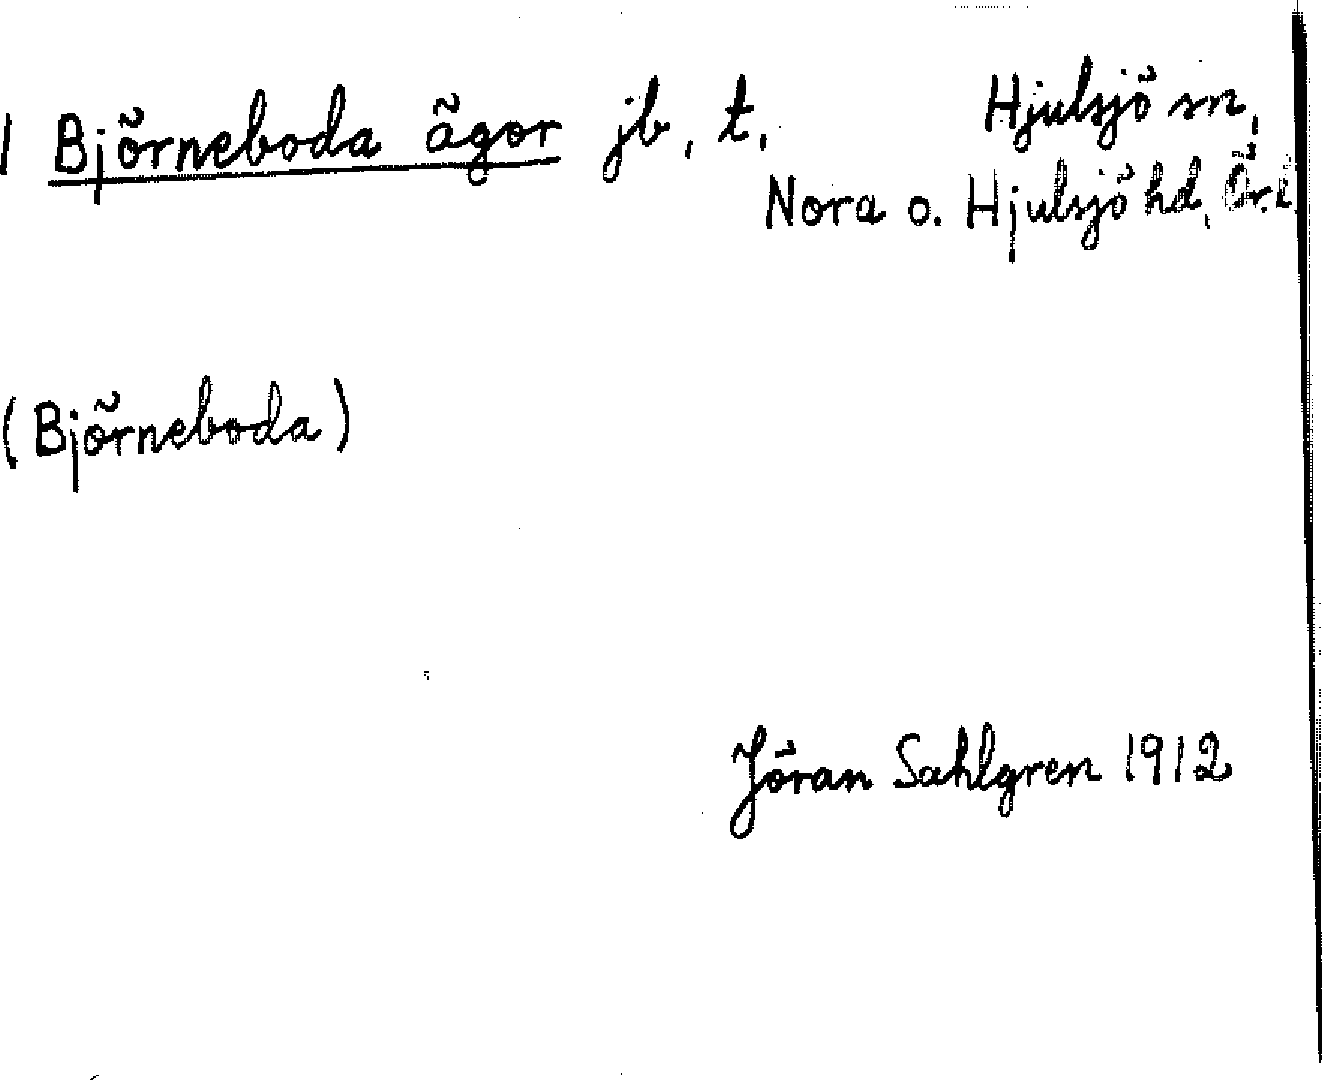 1 Björneboda ägor jb, t,
Hjulsjö sn,
Nora o. Hjulsjö hd, Ör.l
(Björneboda)
Jöran Sahlgren 1912